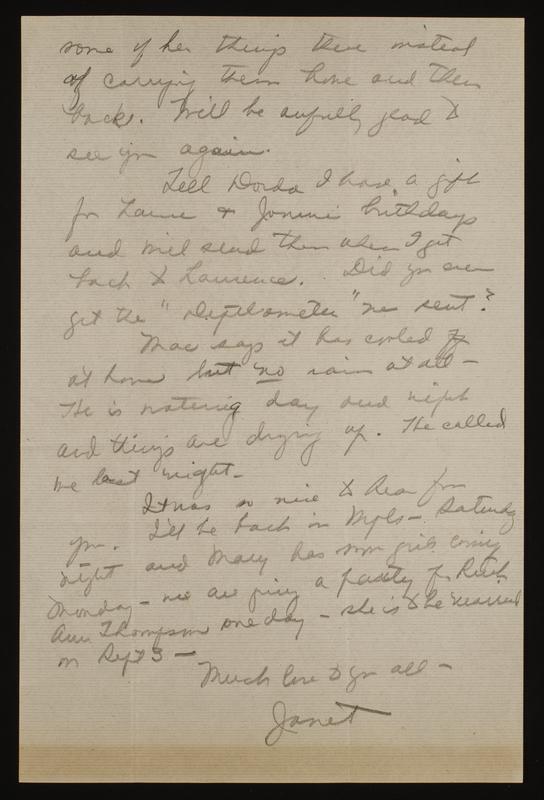 some of her things there instead
of carrying them home and then
back. Will be awfully glad to
see you again.
Tell Dorda I have a gift
for Laurie & Jonnie's birthdays
and will send them when I get
back to Lawrence. Did you ever
get the " " we sent?
Mac says it has cooled off
at home but no rain at all -
He is watering day and night
and things are drying up. He called
me last night -
It was so nice to hear from
you. I'll be back in Mpls - Saturday
night and Mary has some girls coming
Monday - we are giving a party for Ruth
Ann Thompson one day - she is to be married
on Sept 3 -
Much love to you all -
Janet